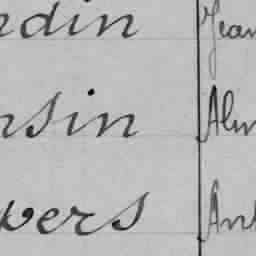 rdin Jean
nsin Alw
vers Ant